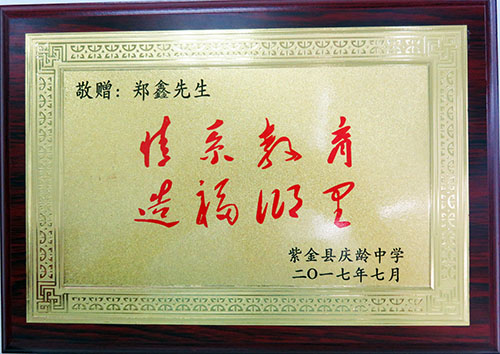 敬赠：郑鑫先生
情系教育
造福乡里
紫金县庆龄中学
二〇一七年七月